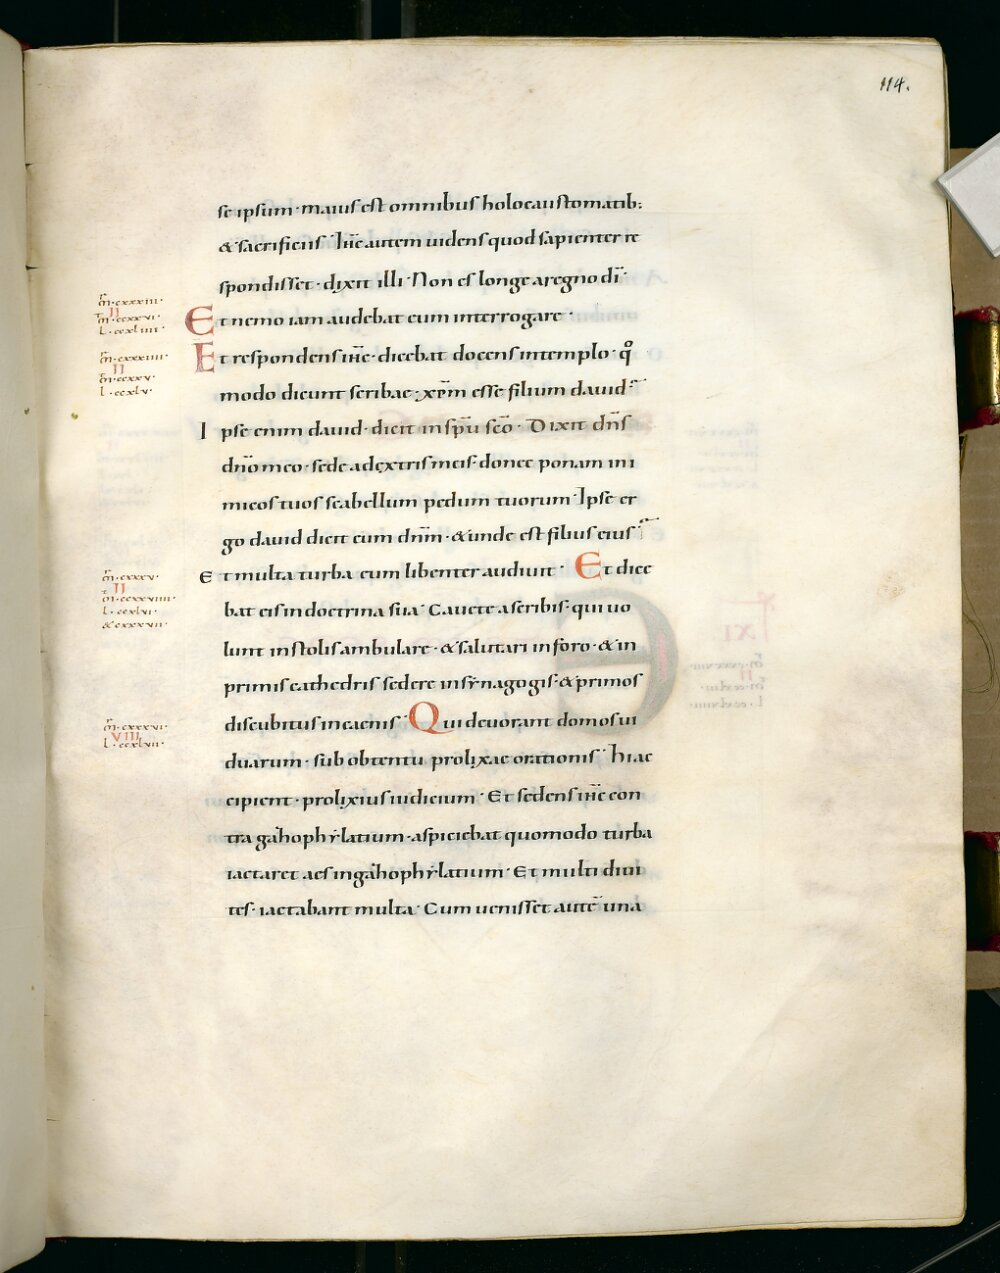 114.
se ipsum · maius est omnibus holocaustomatib:
& sacrificiis · Ihc̄ autem uidens quod sapienter re
spondisset · dixit illi · Non es longe a regno dī ·
m̄ · cxxxiii ·
II
m̄ · ccxxvi ·
L · ccxliiii ·
Et nemo iam audebat eum interrogare ·
m̄ · cxxxiiii ·
II
m̄ · ccxxv ·
L · ccxlv ·
Et respondens ihc̄ · dicebat docens in templo · q̊
modo dicunt scribae · xpm̄ esse filium dauid ·
Ipse enim dauid · dicit in spū scō · Dixit dn̄s
dn̄o meo · sede a dextris meis · donec ponam ini
micos tuos scabellum pedum tuorum · Ipse er
go dauid dicit eum dnm̄ · & unde est filius eius
m̄ · cxxxv ·
II
m̄ · ccxxviiii ·
L · ccxlvi ·
& cxxxvii ·
Et multa turba eum libenter audiuit · Et dice
bat eis in doctrina sua · Cauete a scribis · qui uo
lunt in stolis ambulare · & salutari in foro · & in
primis cathedris sedere in synagogis · & primos
discubitus in caenis · Qui deuorant domos ui
m̄ · cxxxvi ·
VIII
L · ccxlvii ·
duarum · sub obtentu prolixae orationis · Hi ac
cipient · prolixius iudicium · Et sedens ihc̄ con
tra gahophylatium · aspiciebat quomodo turba
iactaret aes in gahophylatium · Et multi diui
tes · iactabant multa · Cum uenisset autē una